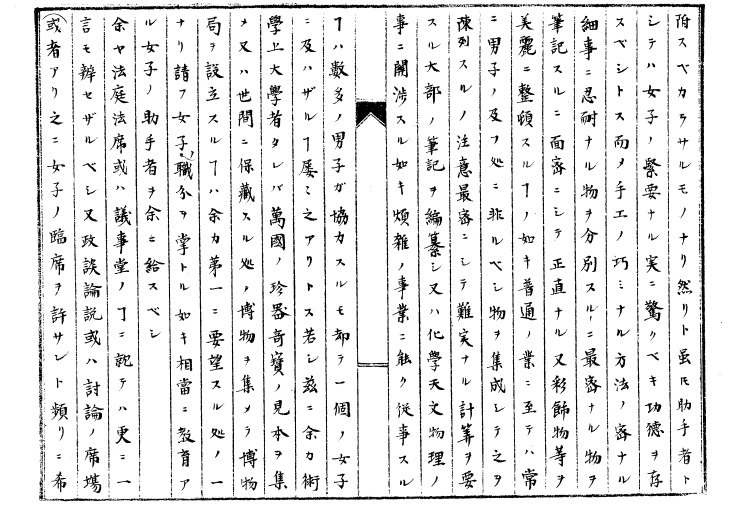 附スベカラサルモノナリ然リト虽𪜈助手者ト
シテハ女子ノ緊要ナル実ニ驚クベキ功徳ヲ存
スベシトス而〆手工ノ巧ミナル方法ノ密ナル
細事ニ忍耐ナル物ヲ分別スルニ最密ナル物ヲ
筆記スルニ面密ニシテ正直ナル又彩飾物等ヲ
美麗ニ整頓スルヿノ如キ普通ノ業ニ至テハ常
ニ男子ノ及フ処ニ非ルベシ物ヲ集成シテ之ヲ
陳列スルノ注意最密ニシテ難実ナル計筭ヲ要
スル大部ノ筆記ヲ編纂シ又ハ化學天文物理ノ
事ニ関渉スル如キ煩雑ノ事業ニ能ク従事スル
ヿハ数多ノ男子ガ協力スルモ却テ一個ノ女子
ニ及ハザルヿ屡ミ之アリトス若シ茲ニ余カ術
學上大學者タレバ萬國ノ珍器奇寶ノ見本ヲ集
メ又ハ世間ニ保藏スル処ノ博物ヲ集メテ博物
局ヲ設立スルヿハ余カ第一ニ要望スル処ノ一
ナリ請フ女子ノ職分ヲ掌トル如キ相當ニ教育ア
ル女子ノ助手者ヲ余ニ給スベシ
余ヤ法庭法席或ハ議事堂ノヿニ就テハ更ニ一
言モ辨セザルベシ又政談論説或ハ討論ノ席場
或者アリ之ニ女子ノ臨席ヲ許サント頻リニ希